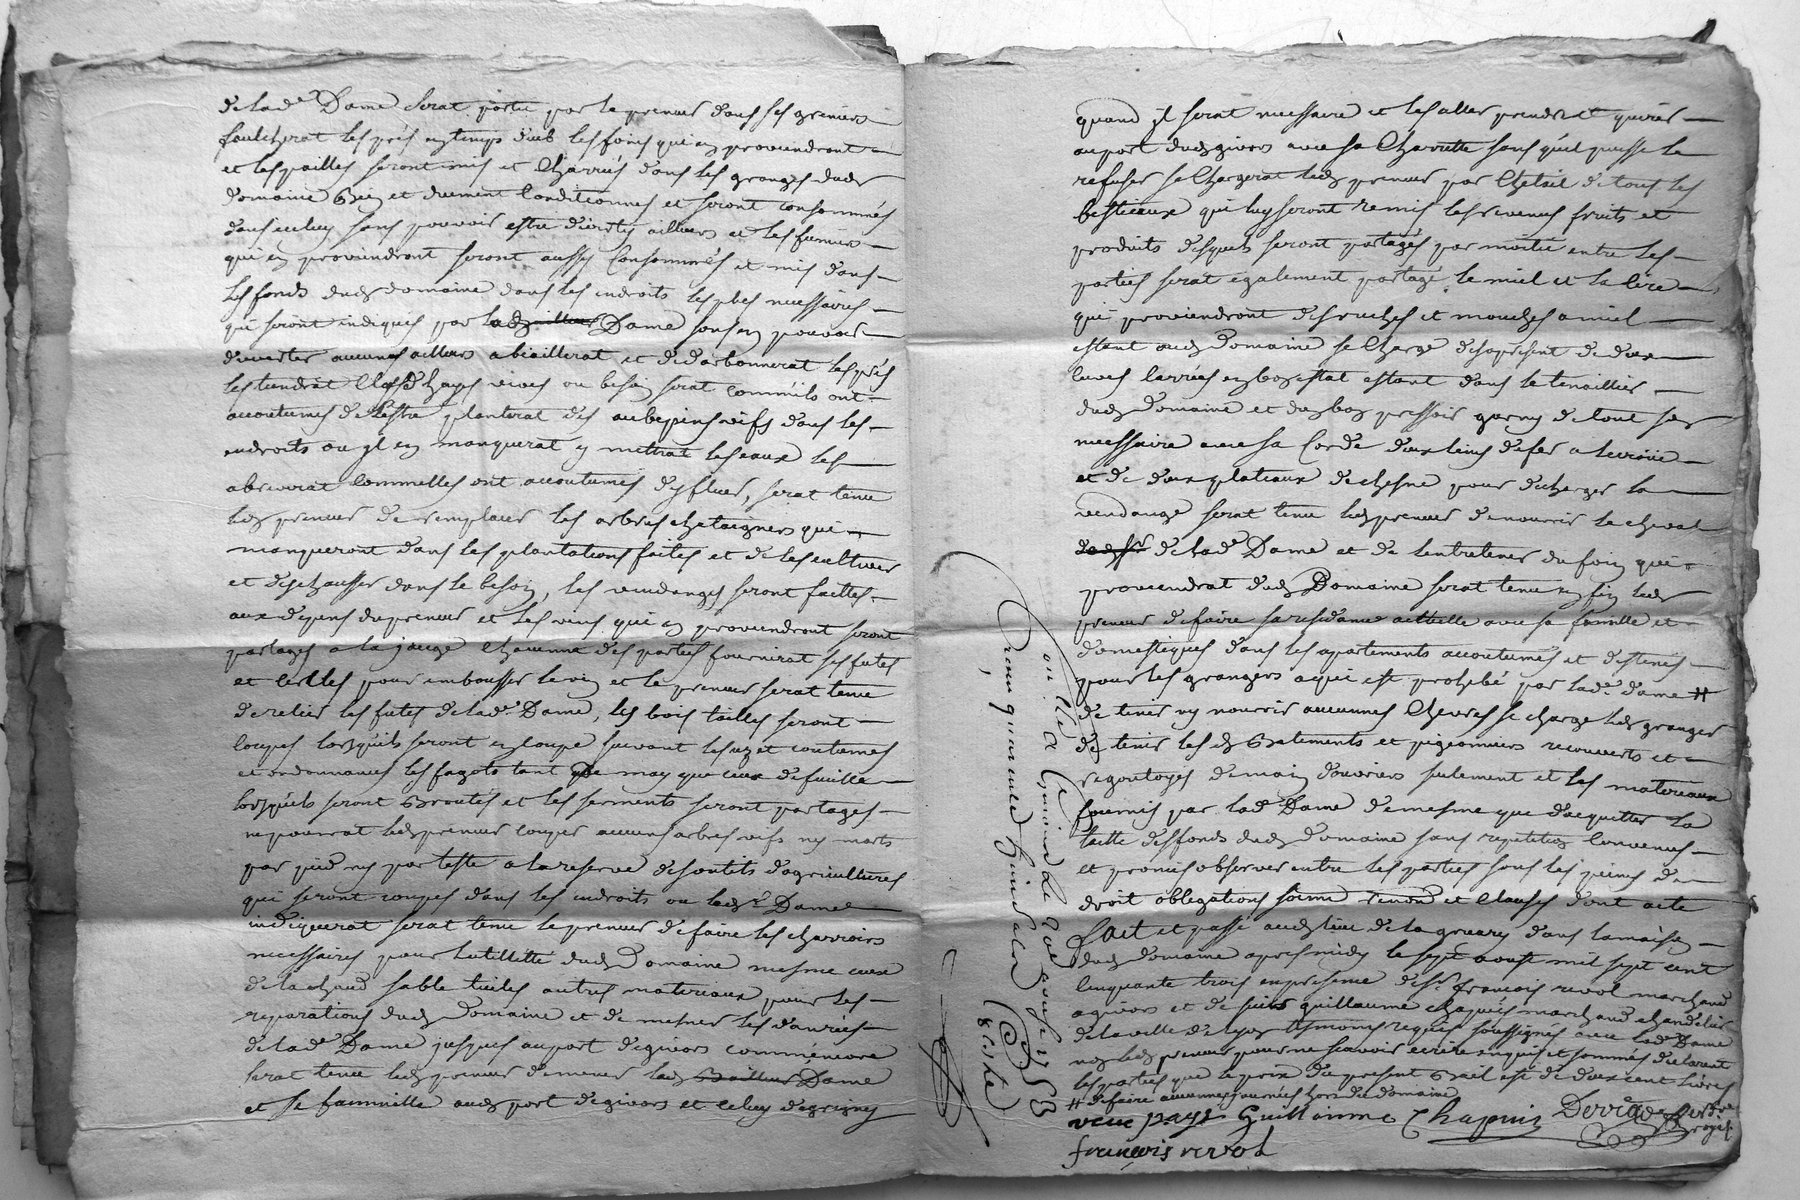 de lade Dame serat portée par le preneur dans ses greniers
faulcherat les prés en temps dueb les foins qui en proviendront
et les pailles seront mis et charriés dans les granges dudt
domaine bien et duement conditionnés et seront consommés
dans iceluy sans pouvoir estre divertis ailleurs et les fumiers
qui en proviendront seront aussy consommés et mis dans
les fonds dudt domaine dans les endroits les plus necessaires
qui seront indiqués par ladt bailleur Dame sans en pouvoir
divertir aucunes ailleurs abiaillerat et dedarbonnerat les prés
les tiendrat clos d'hayes vives ou besoin serat comme ils ont
accoutumés de l'estre planterat des aubepins vifs dans les
endroits ou il en manquerat y mettrat les eaux les
abreuverat comme elles ont accoutumés d'y fluer, serat tenu
ledt preneur de remplacer les arbres chataigners qui
manqueront dans les plantations faites et de les cultiver
et deschausser dans le besoin, les vendanges seront faittes
aux depens du preneur et les vins qui en proviendront seront
partagés a la jauge chacune des parties fournirat ses futes
et cercles pour embousser le vin et le preneur serat tenu
de relier les futes de lade Dame, les bois tailles seront
coupés lorsqu'ils seront en coupe suivant les uz et coutumes
et ordonnances les fagots tant de may que ceux de feuille
lorsqu'ils seront broutés et les serments seront partagés
ne pourrat ledt preneur couper aucuns arbres vifs ny morts
par pied ny par teste a la reserve des outils d'agricultures
qui seront coupés dans les endroits ou ladt Dame
indiquerat serat tenu le preneur de faire les charrois
necessaires pour lutillitté dudt Domaine mesme ceux
de la chaud sable tuiles autres materiaux pour les
reparations dudt Domaine et de mener les danrées
de lade Dame jusques au port de givors comme encore
serat tenu ledt preneur d'emener ladt bailleur Dame
et sa fammille audt port de givors et celuy de grigny
quand il serat necessaire et les aller prendre et querir
au port dudt givors avec sa charrette sans qu'il puisse le
refuser se chargerat ledt preneur par chetail de tous les
bestieaux qui luy seront remis les revenus fruits et
produits desquels seront partagés par moitié entre les
parties serat egalement partagé le miel et la cire
qui proviendront des ruches et mouches a miel
estant audt Domaine se charge des a present de deux
cuves carrées en bon estat estant dans le tenaillier
dudt Domaine et du bon pressoir garny de tout ses
necessaire avec sa corde deux liens de fer a la roüe
et de deux plateaux de chesne pour decharger la
vendange serat tenu ledt preneur de nourrir le cheval
dudt sr de lade Dame et de l'entretenir du foin qui
proviendrat dudt Domaine serat tenu en fin ledt
preneur de faire sa residance actuelle avec sa famille et
domestiques dans les apartements accoutumés et destinés
pour les grangers a qui est prohibé par lade dame #
de tenir ny nourrir aucunnes chevres se charge ledt granger
de tenir les dt batements et pigeonniers recouverts et
regoutoyés de main d'ouvriers seulement et les materiaux
fournis par lade Dame de mesme que d'acquitter la
taille des fonds dudt Domaine sans repetition convenus
et promis observer entre les parties sous les peines de
droit obligations soumi renon et clauses dont acte
fait et passé audt lieu de la gruary dans la maison
dudt domaine apres midy le sept aoust mil sept cent
cinquante trois en presence de sr francois revol marchand
a givors et de sieur guillaume chapuis marchand chandelier
de la ville de lyon tesmoins requis soussignés avec ladt Dame
non ledt preneur pour ne scavoir ecrire enquis et sommés declarent
les parties que le prix du present bail est de deux cent livres
# de faire aucunnes journées hors du domaine
veuve pays Guillaume Chapuis Dervieu Nore royal
françois revol
Con. lé a Condrieu le 20e aoust 1753
Reçu quarante huit sols